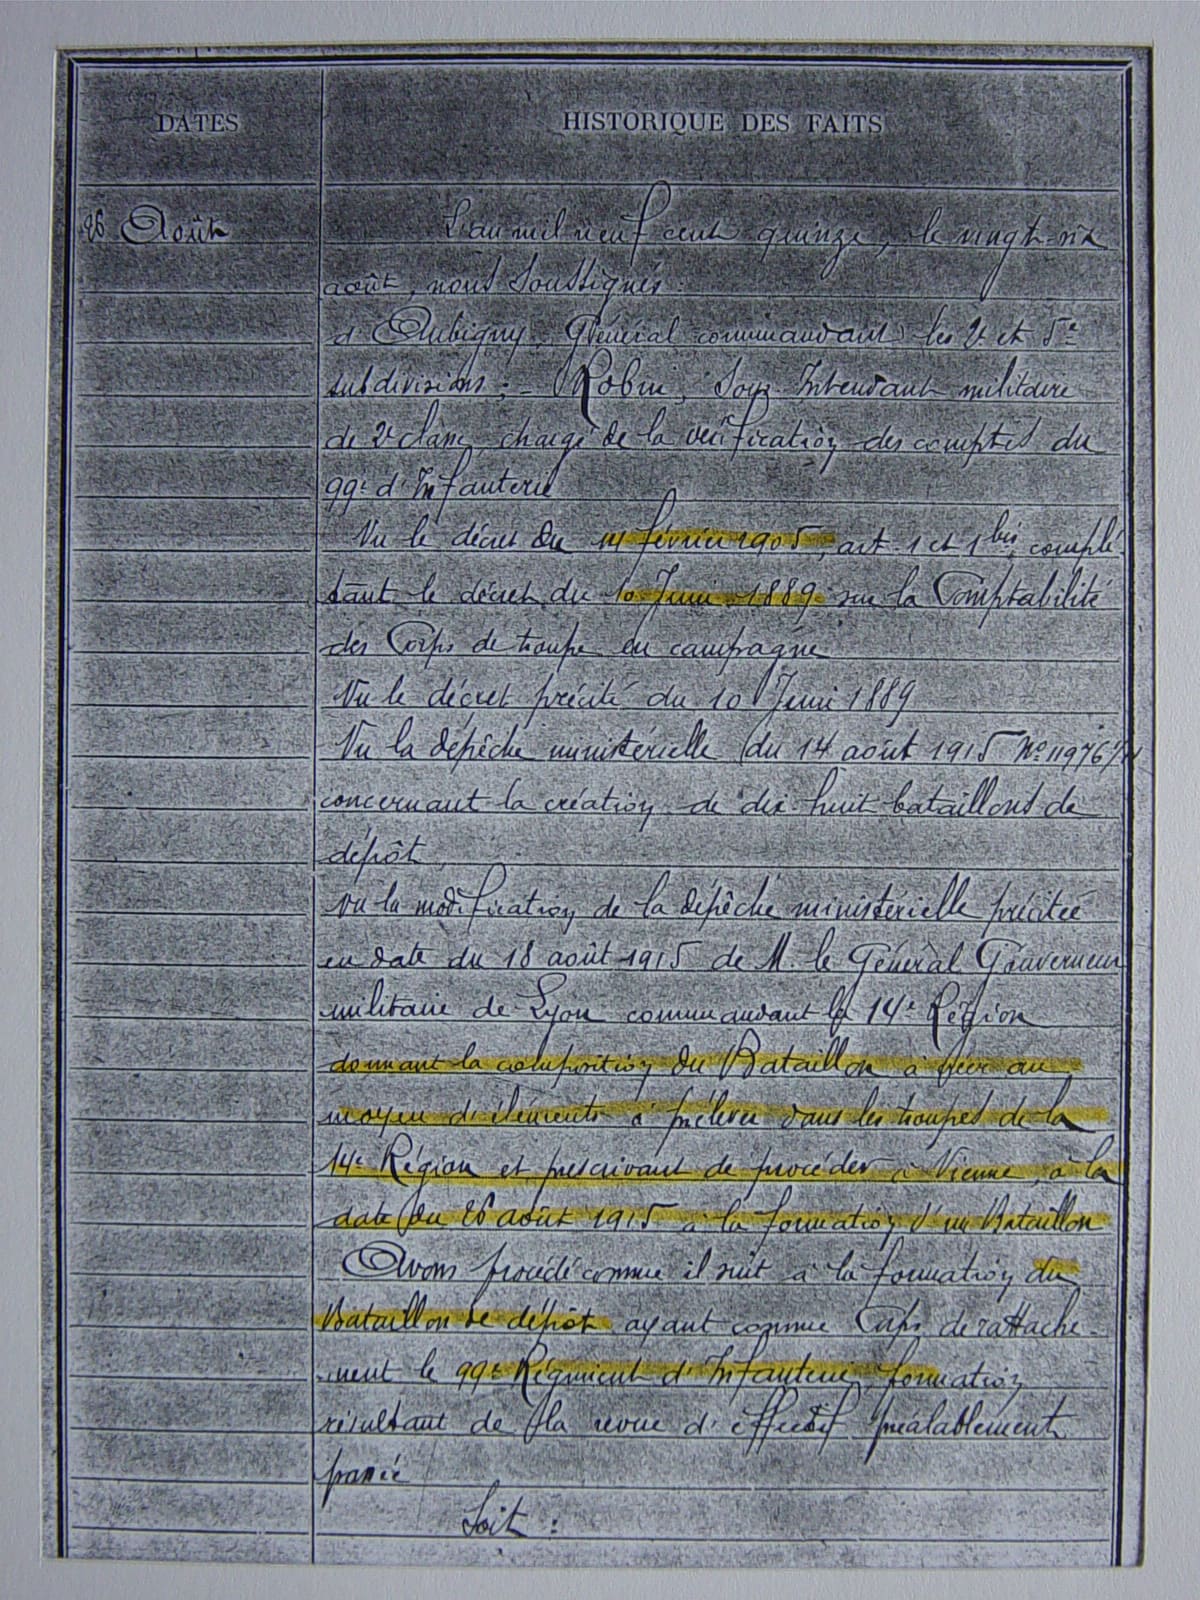 DATES
HISTORIQUE DES FAITS
26 Août
L'an mil neuf cent quinze, le vingt-six
août, nous soussignés:
d'Aubigny, Général commandant les 2e et 5e
subdivisions; - Robin, Sous Intendant militaire
de 2e classe, chargé de la vérification des comptes du
99e d'Infanterie
Vu le décret du 14 février 1905, art. 1 et 1 bis, complé-
tant le décret du 10 Juin 1889 sur la Comptabilité
des Corps de troupe en campagne
Vu le décret précité du 10 Juin 1889
Vu la dépêche ministérielle du 14 août 1915 No 11976
concernant la création de dix huit bataillons de
dépôt,
Vu la modification de la dépêche ministérielle précitée
en date du 18 août 1915 de M. le Général Gouverneur
militaire de Lyon commandant la 14e Région
donnant la composition du Bataillon à créer au
moyen d'éléments à prélever dans les troupes de la
14e Région et prescrivant de procéder à Vienne, à la
date du 26 août 1915 à la formation d'un Bataillon
Avons procédé comme il suit à la formation du
Bataillon de dépôt ayant comme Corps de rattache-
ment le 99e Régiment d'Infanterie, formation
résultant de la revue d'effectif préalablement
passée
Soit: